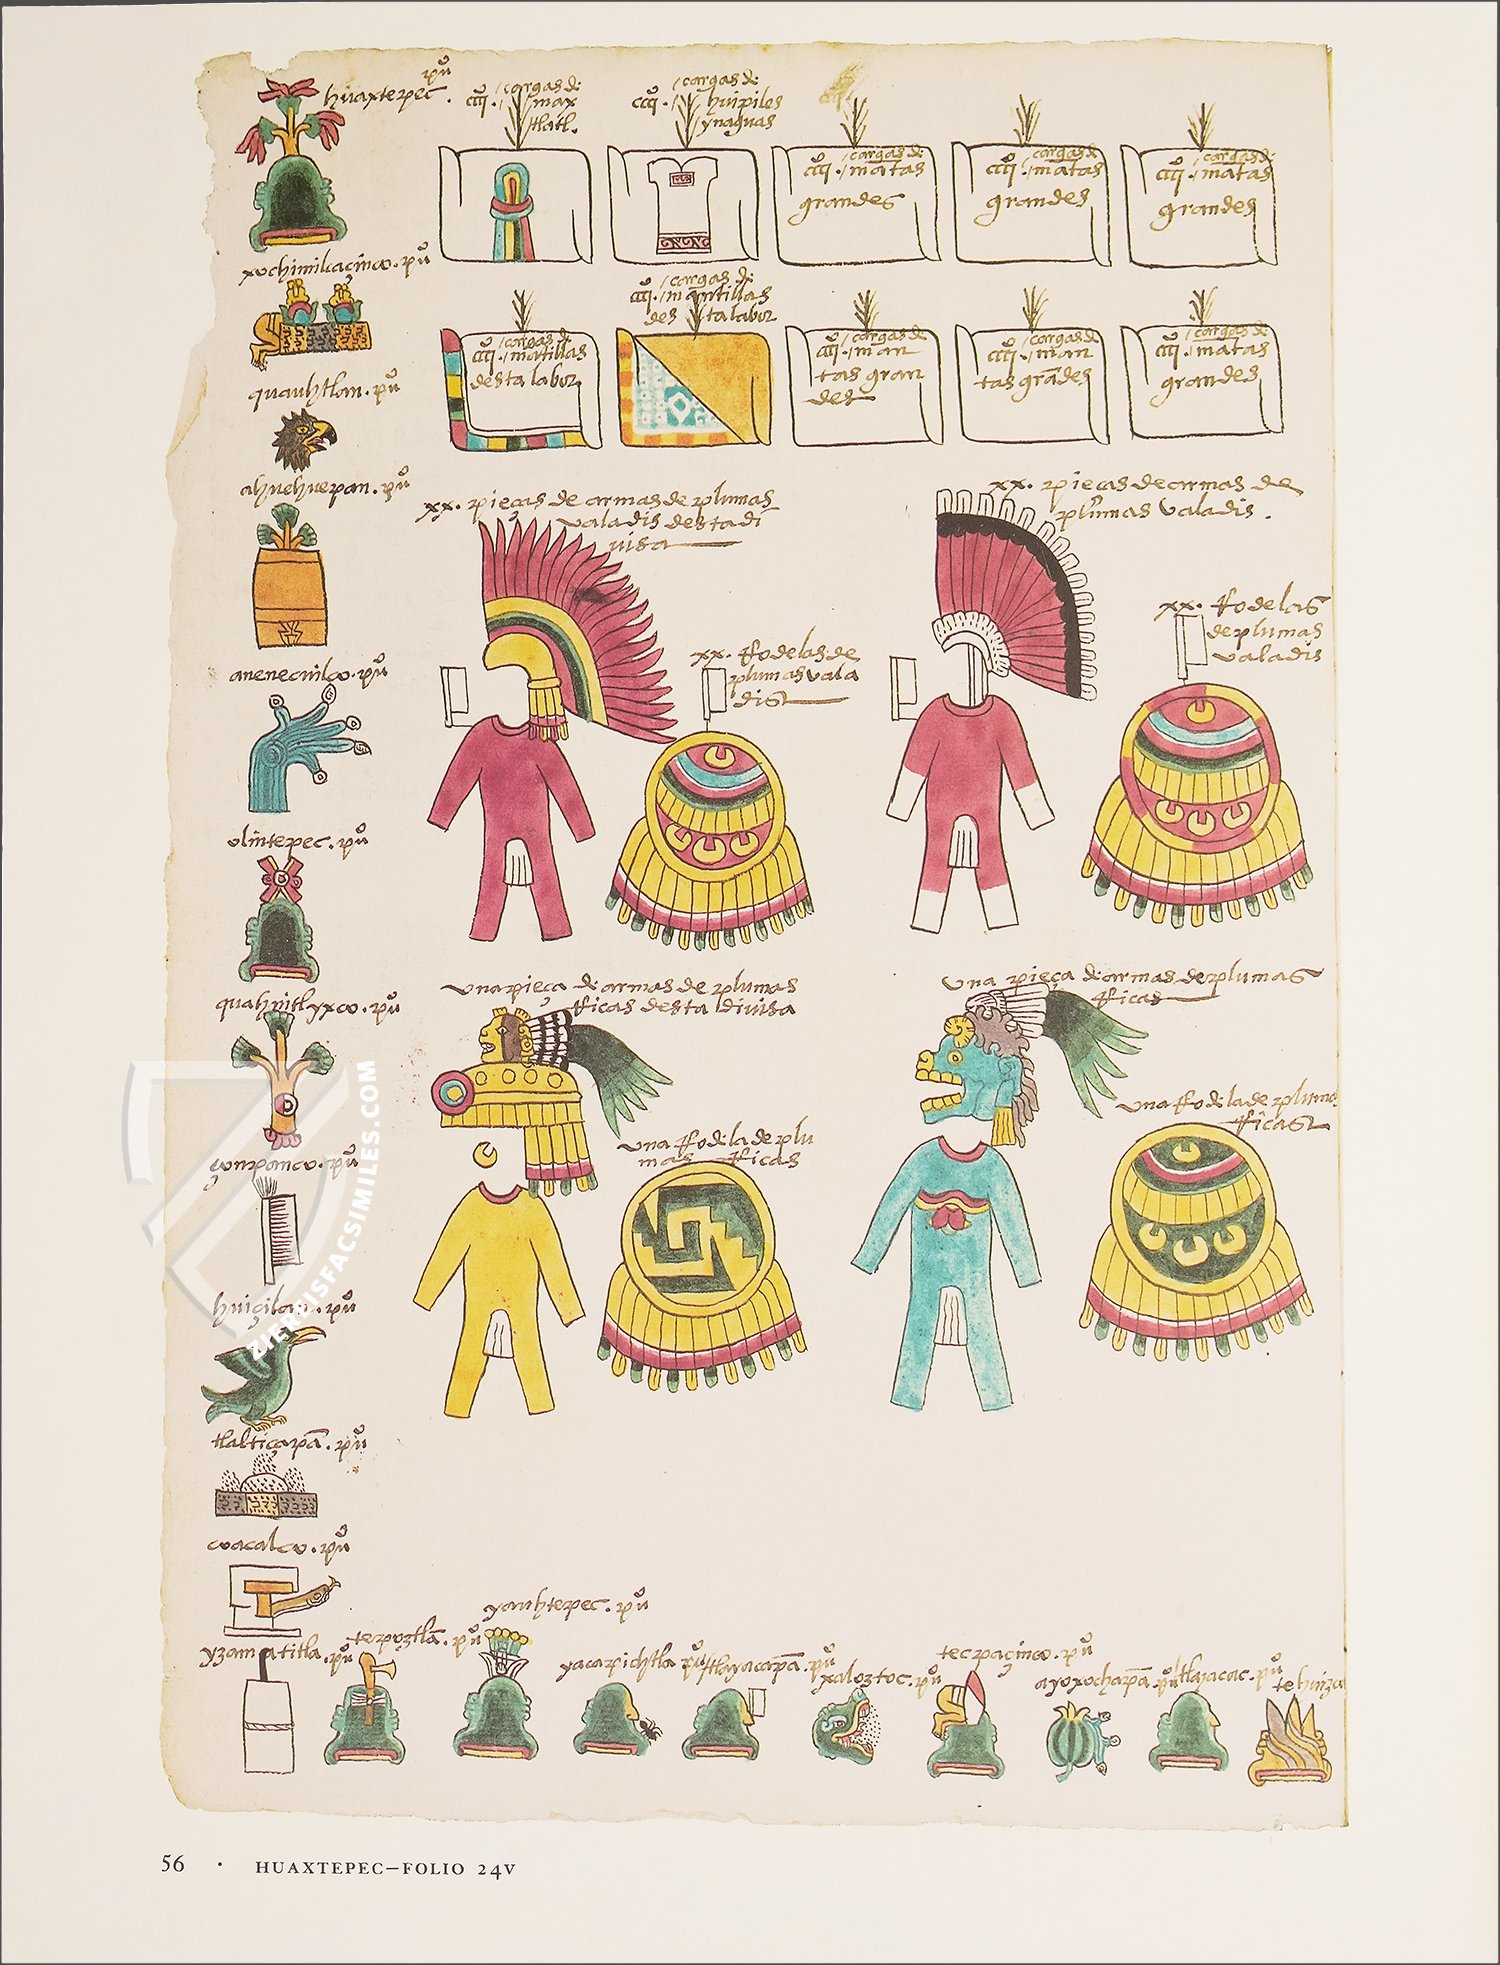 huaxtepec. pũ
cccc. cargas de
max
tlatl.
cccc. cargas de
huipiles
ynaguas
cccc. cargas de
mãtas
grandes
cccc. cargas de
mãtas
grandes
cccc. cargas de
mãtas
grandes
xochimilcaçinco. pũ
cccc. cargas de
mãtillas
desta labor
cccc. cargas de
mantillas
desta labor
cccc. cargas de
man
tas gran
des
cccc. cargas de
man
tas grãdes
cccc. cargas de
mãtas
grandes
quauhtlan. pũ
ahuehuepan. pũ
xx. pieças de armas de plumas
valadis desta di
uisa
xx. pieças de armas de
plumas valadis.
xx. Rodelas de
plumas vala
dis
xx. Rodelas
de plumas
valadis
anenecuilco. pũ
olintepec. pũ
quahuitlyxco. pũ
una pieça de armas de plumas
Ricas desta divisa
una pieça de armas de plumas
Ricas
una Rodela de plu
mas Ricas
una Rodela de plumas
Ricas
çonpanco. pũ
huiçilan. pũ
tlaltiçapã. pũ
coacalco. pũ
yzamatitla. pũ
tepuztlã. pũ
yauhtepec. pũ
yacapichtla pũ
tlayacapã. pũ
xaloztoc. pũ
tecpaçinco. pũ
ayoxochapã. pũ
tlayacac. pũ
tehuizco
ZIEREISFACSIMILES.COM
56 · HUAXTEPEC—FOLIO 24V